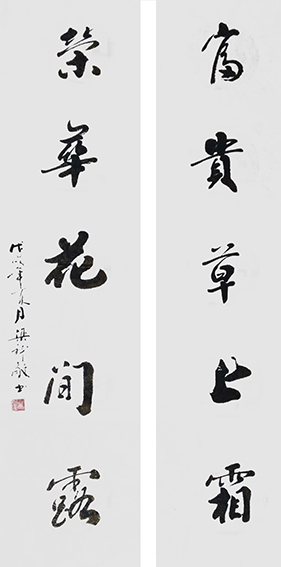 富貴草上霜
榮華花間露
戊戌年六月梁㪚書